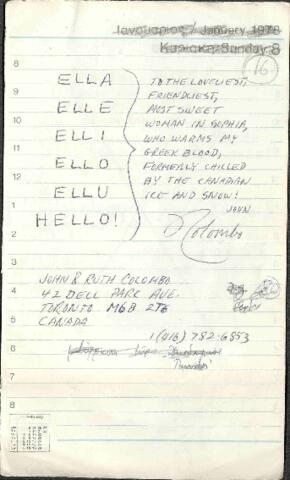 Ιανουάριος / January 1978
Κυριακή Sunday 8
16
8
9
10
11
12
1
2
3
4
5
6
7
8
ELLA
ELLE
ELLI
ELLO
ELLU
HELLO!
TO THE LOVELIEST,
FRIENDLIEST,
MOST SWEET
WOMAN IN SEPHIA,
WHO WARMS MY
GREEK BLOOD,
FORMERLY CHILLED
BY THE CANADIAN
ICE AND SNOW!
JOHN
Colombo
JOHN & RUTH COLOMBO
42 DELL PARK AVE.
TORONTO M6B 2T6
CANADA
1 (416) 782-6853